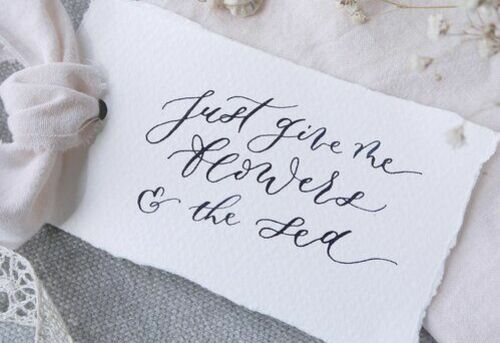 Just give me
flowers
& the sea